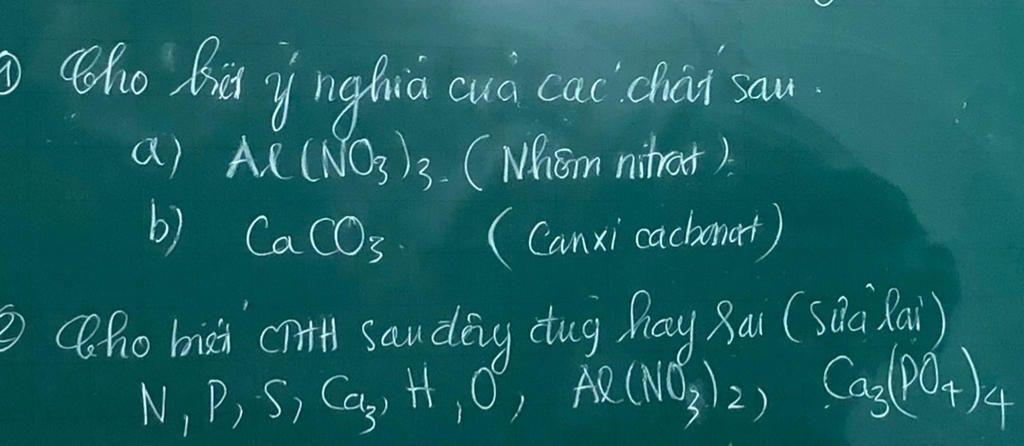 ① Cho biết ý nghĩa của các chất sau.
a) Al(NO₃)₃. (Nhôm nitrat).
b) CaCO₃. (Canxi cacbonat)
② Cho biết CTHH sau đây đúg hay sai (sửa lại)
N, P, S, Ca₃, H, O, Al(NO₃)₂, Ca₃(PO₄)₄